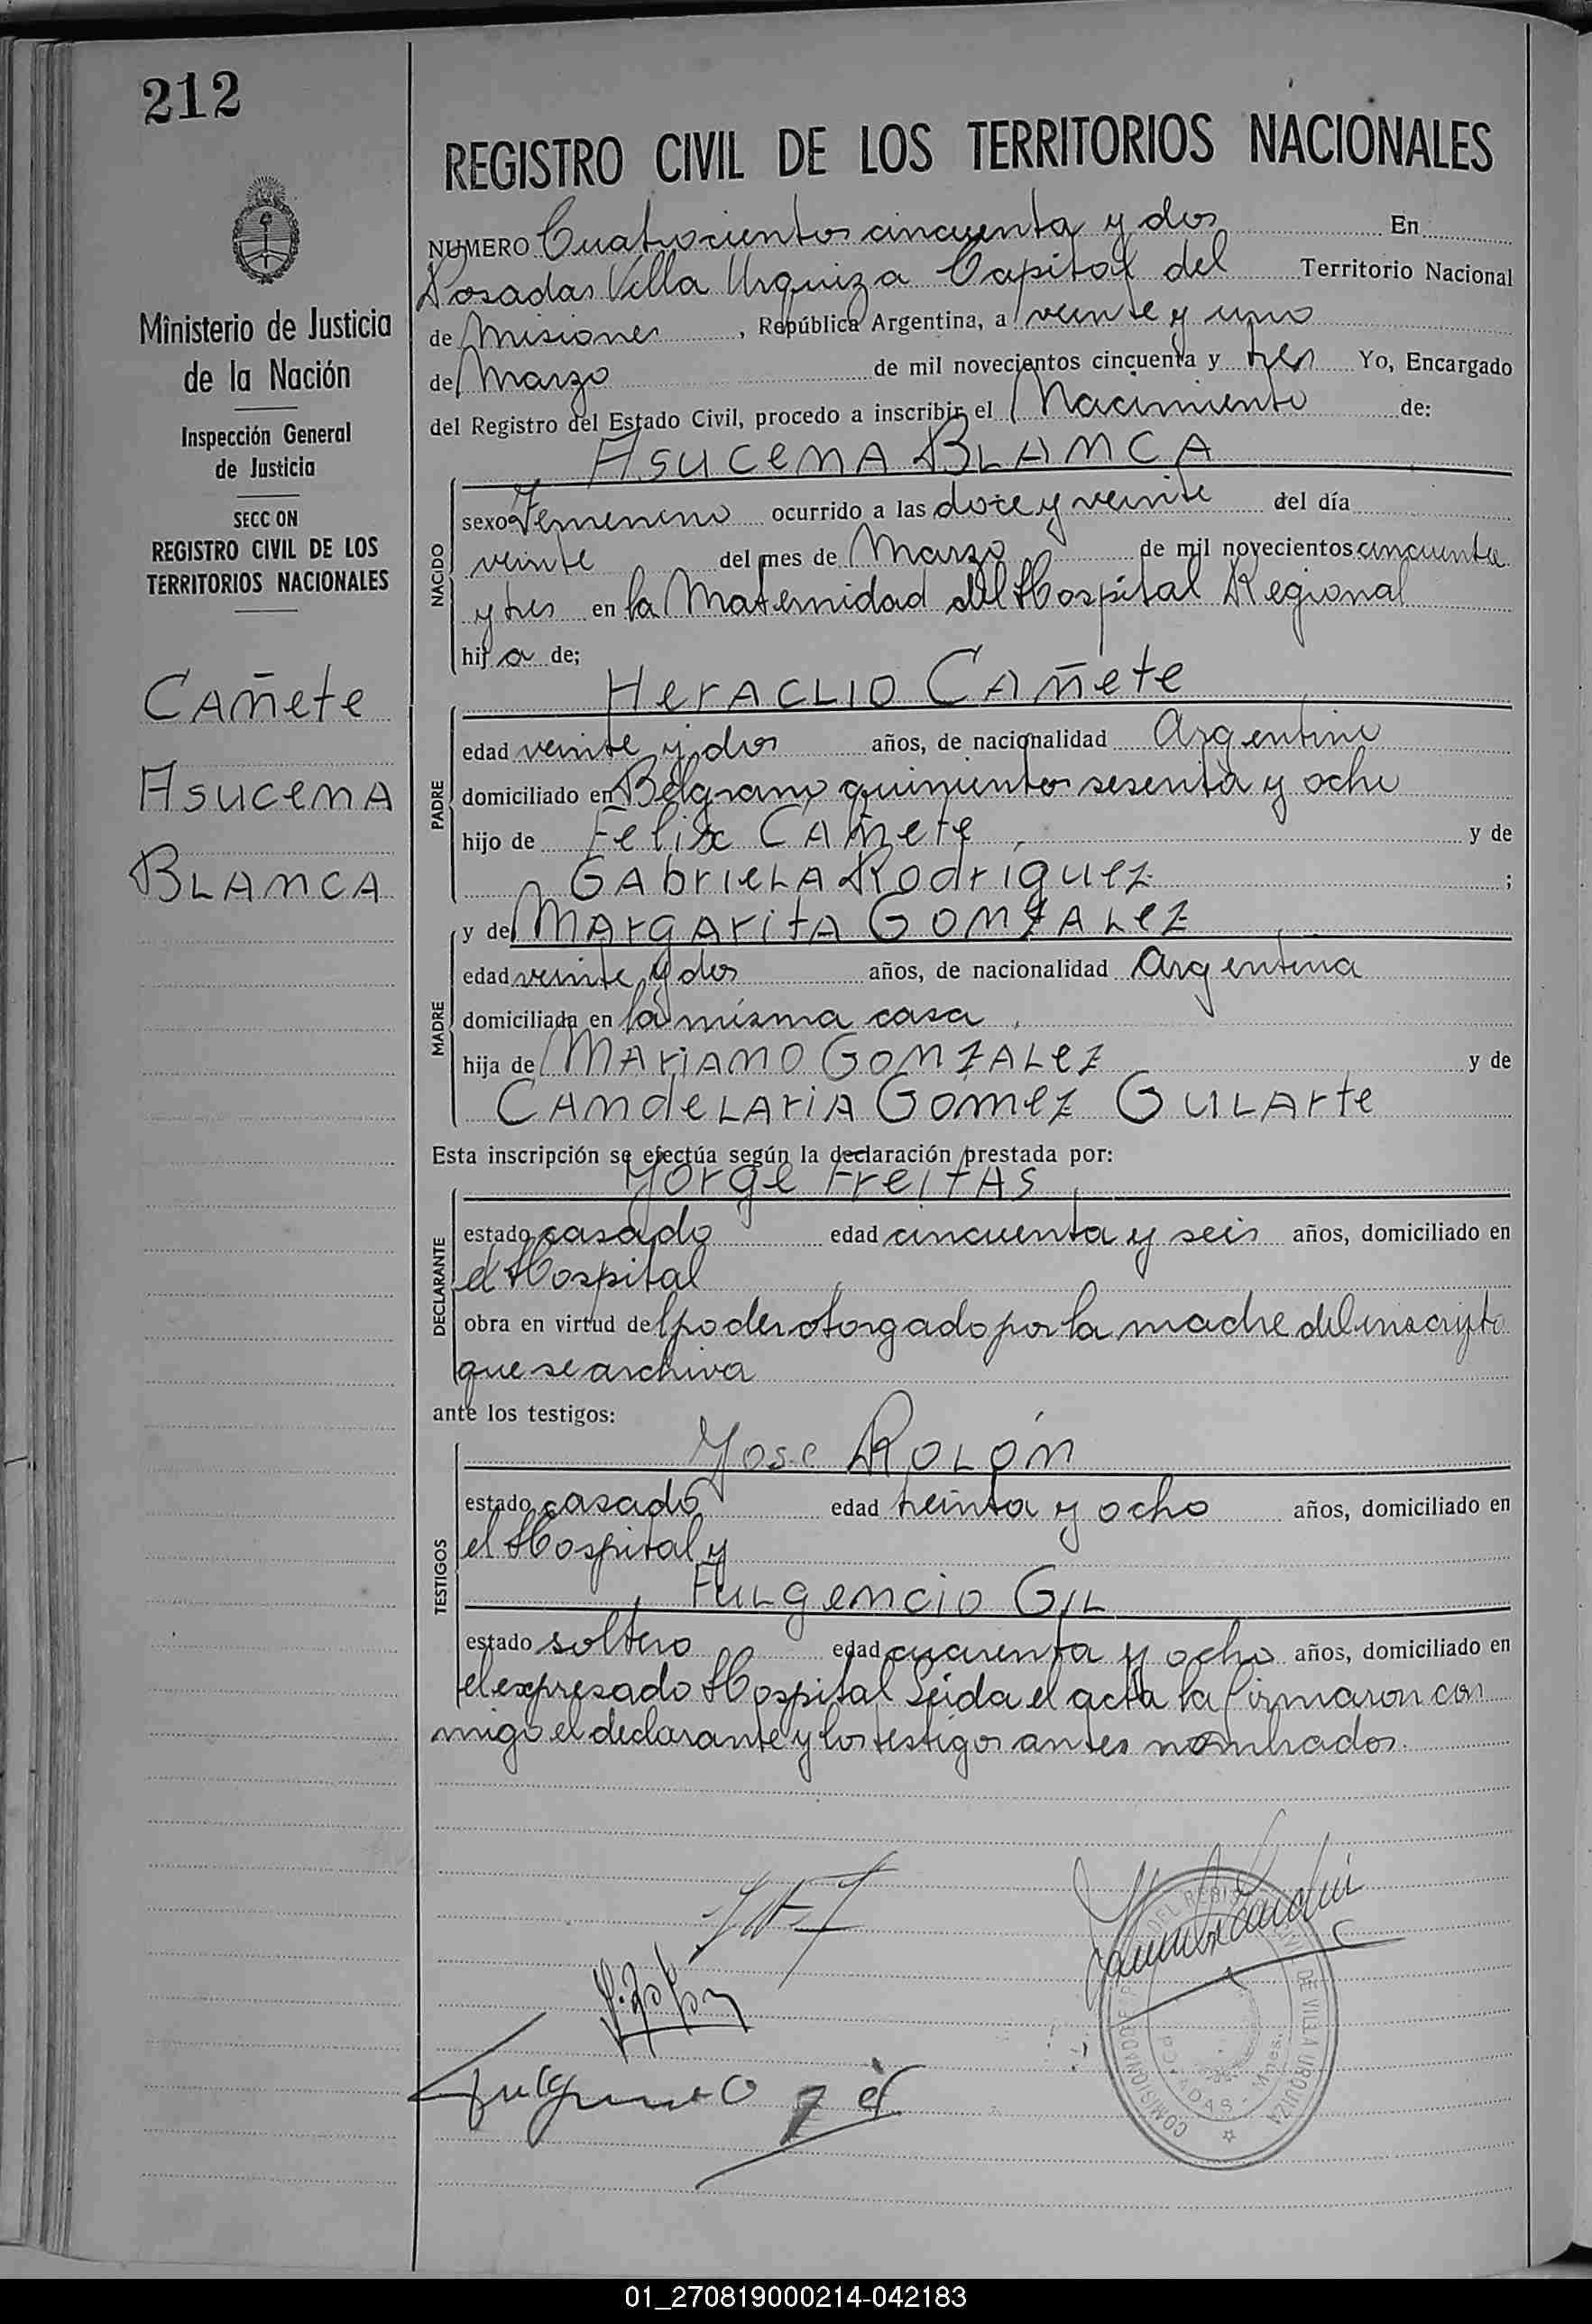 212
REGISTRO CIVIL DE LOS TERRITORIOS NACIONALES
Ministerio de Justicia
de la Nación
Inspección General
de Justicia
SECC ON
REGISTRO CIVIL DE LOS
TERRITORIOS NACIONALES
Cañete
Asucena
Blanca
NUMERO Cuatrocientos cincuenta y dos En
Posadas Villa Urquiza Capital del Territorio Nacional
de Misiones, República Argentina, a veinte y uno
de Marzo de mil novecientos cincuenta y tres Yo, Encargado
del Registro del Estado Civil, procedo a inscribir el Nacimiento de:
Asucena Blanca
NACIDO
sexo Femenino ocurrido a las doce y veinte del día
veinte del mes de Marzo de mil novecientos cincuenta
y tres en la Maternidad del Hospital Regional
hija de;
Heraclio Cañete
PADRE
edad veinte y dos años, de nacionalidad Argentino
domiciliado en Belgrano quinientos sesenta y ocho
hijo de Felix Cañete, y de
Gabriela Rodríguez ;
y de Margarita Gonzalez
MADRE
edad veinte y dos años, de nacionalidad Argentina
domiciliada en la misma casa,
hija de Mariano Gonzalez y de
Candelaria Gomez Gularte
Esta inscripción se efectúa según la declaración prestada por:
Jorge Freitas
DECLARANTE
estado casado edad cincuenta y seis años, domiciliado en
el Hospital
obra en virtud del poder otorgado por la madre del inscripto
que se archiva
ante los testigos:
Jose Rolón
TESTIGOS
estado casado edad treinta y ocho años, domiciliado en
el Hospital y
Fulgencio Gil
estado soltero edad cuarenta y ocho años, domiciliado en
el expresado Hospital Leida el acta la firmaron con
migo el declarante y los testigos antes nombrados.
Fulgencio Gil
01_270819000214-042183